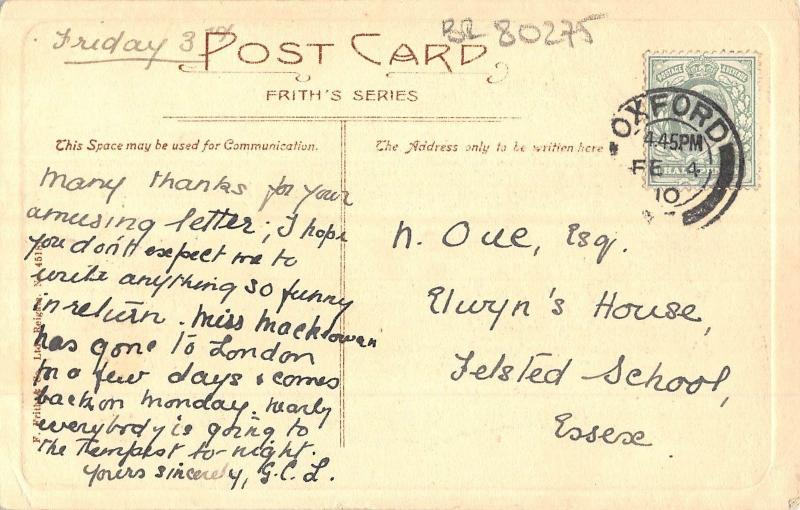 Friday 3rd
BR 80275
POST CARD
FRITH'S SERIES
This Space may be used for Communication.
The Address only to be written here
POSTAGE
HALFPENNY
OXFORD
4.45PM
FE 4
10
Many thanks for your
amusing letter; I hope
you don't expect me to
write anything so funny
in return. Miss
has gone to London
for a few days & comes
back on Monday. Nearly
everybody is going to
the Tempest to-night.
Yours sincerely, G.C.L.
N. Esq.
Elwyn's House,
Felsted School,
Essex.
F. Frith & Co., Ltd., Reigate.